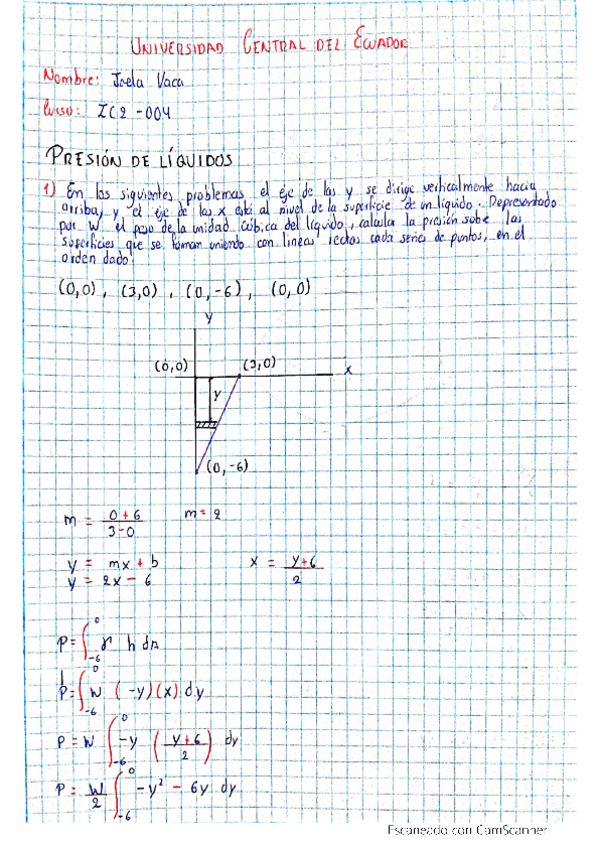 UNIVERSIDAD CENTRAL DEL ECUADOR
Nombre: Joela Vaca
Curso: IC2-004
PRESIÓN DE LÍQUIDOS
1) En los siguientes problemas el eje de las y se dirige verticalmente hacia
arriba, y el eje de las x está al nivel de la superficie de un líquido. Depresentado
por W el peso de la unidad cúbica del líquido, calcula la presión sobe las
superficies que se forman uniendo con lineas rectas cada series de puntos, en el
orden dado.
(0,0), (3,0), (0,-6), (0,0)
y
(0,0) (3,0) x
y
(0,-6)
m = 0+6 / 3-0 m=2
y = mx + b x = y+6 / 2
y = 2x - 6
P = ∫_{-6}^{0} γ h dA
P = ∫_{-6}^{0} w (-y)(x) dy
P = W ∫_{-6}^{0} -y (y+6 / 2) dy
P = W/2 ∫_{-6}^{0} -y² - 6y dy
Escaneado con CamScanner